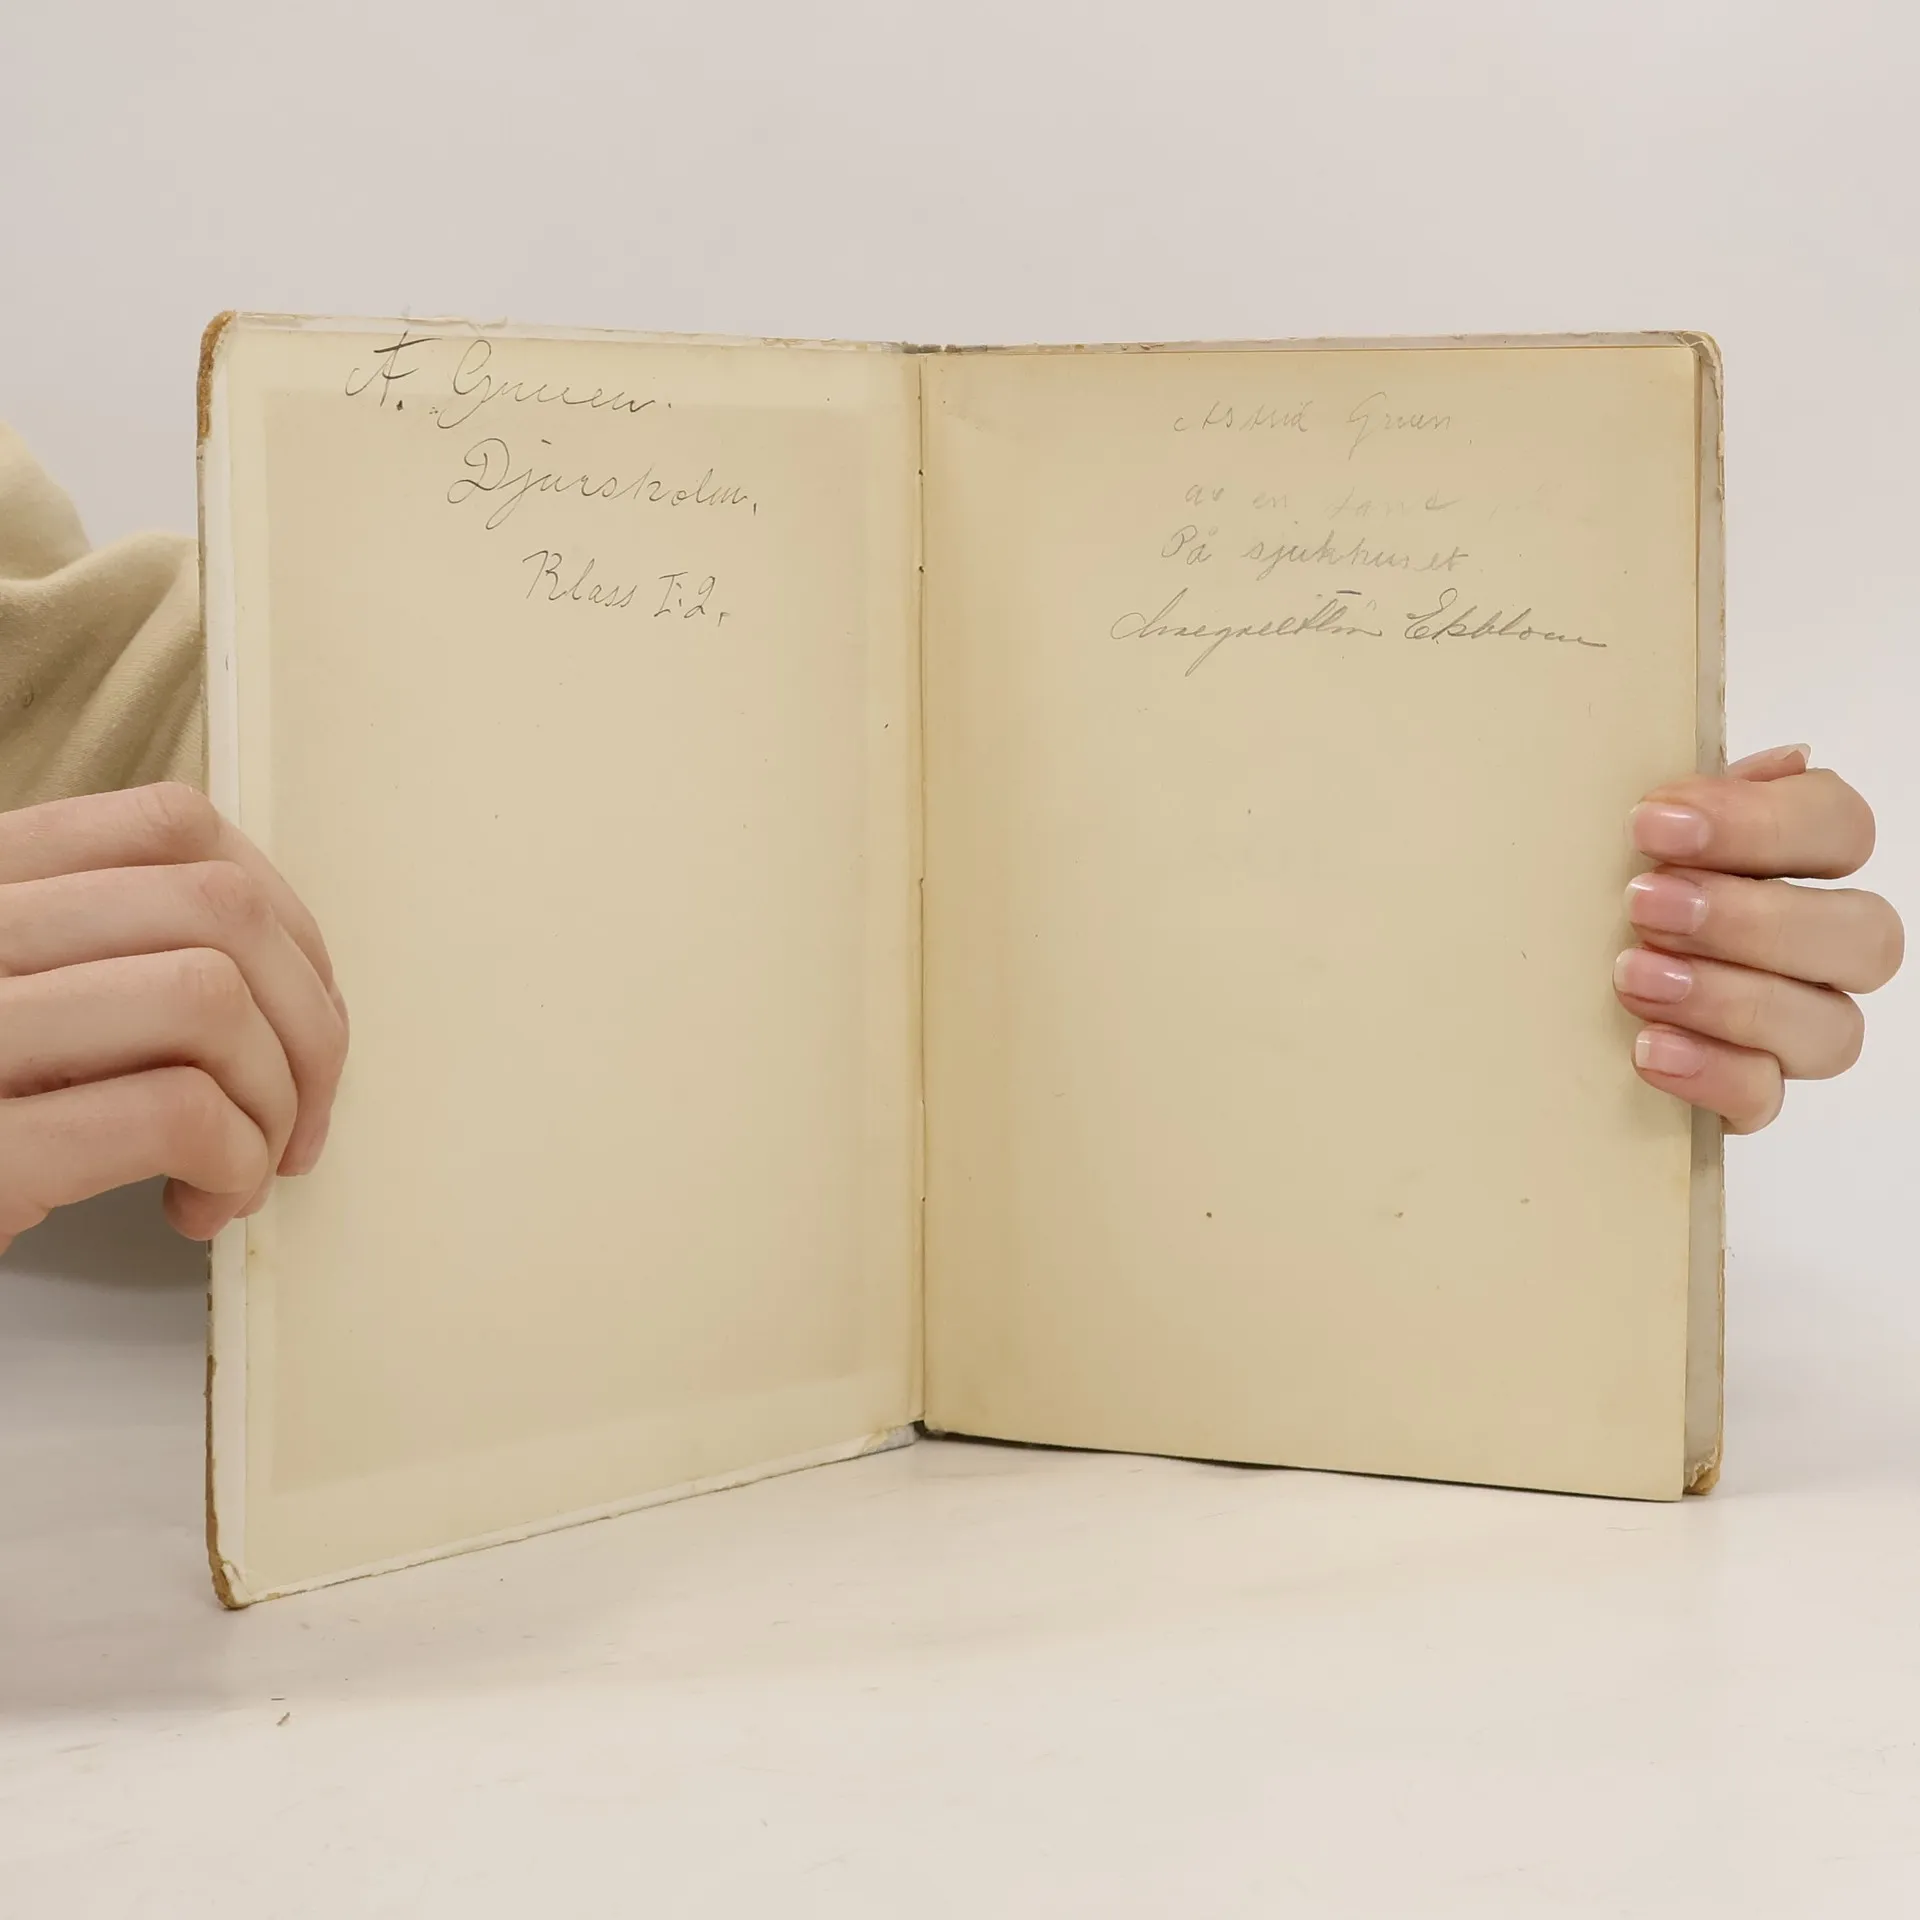 A. Gruen.
Djursholm.
Klass I:2.
Astrid Gruen
av en
På sjukhuset
Ekblom